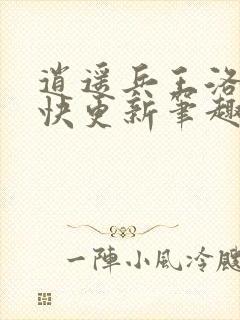 逍遥兵王洛
快更新笔趣
一陣小風冷颼